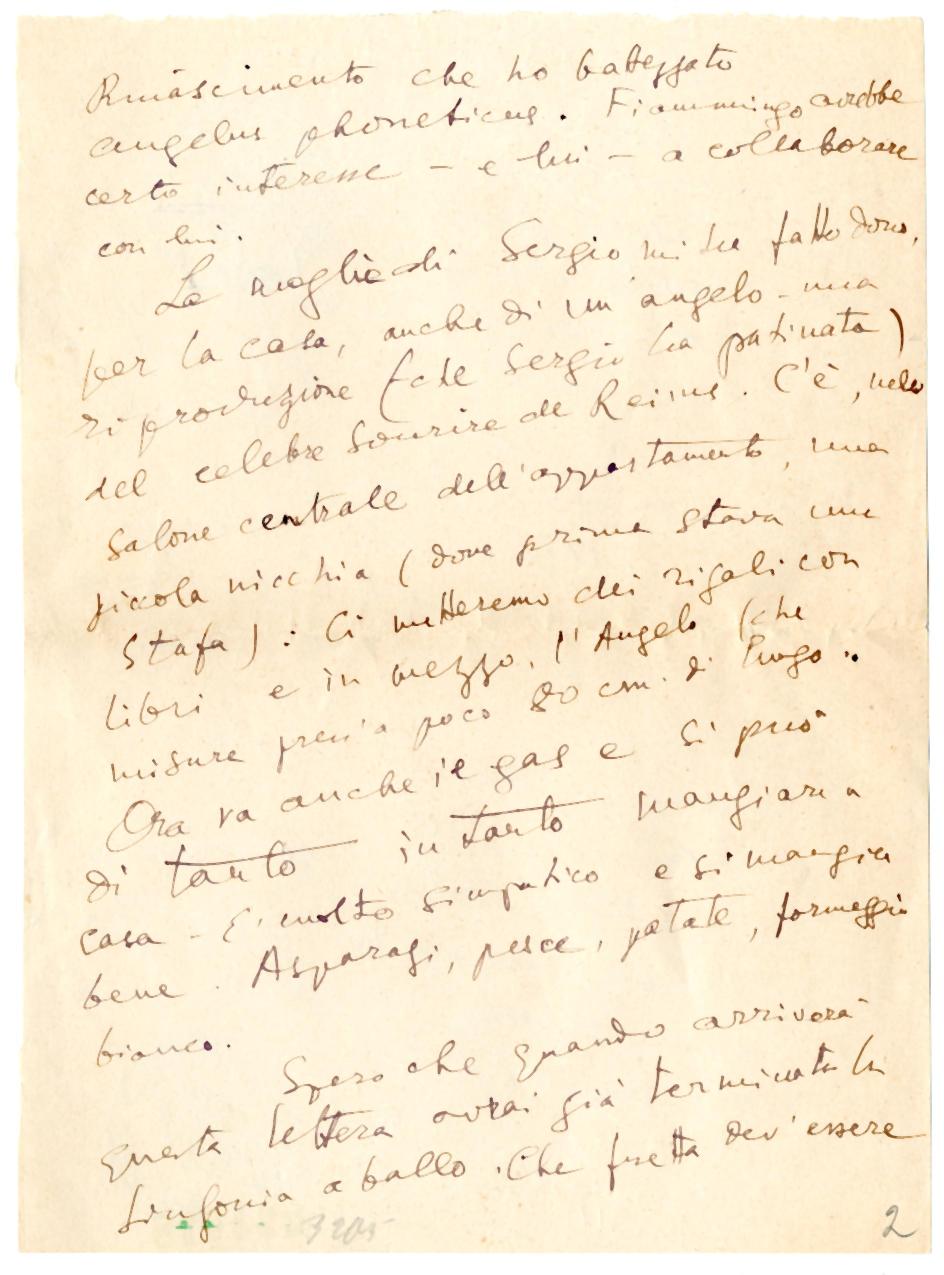 Rinascimento che ho battezzato
angelus phoneticus. Fiammingo avrebbe
certo interesse - e lui - a collaborare
con lui.
La moglie di Sergio mi ha fatto dono,
per la casa, anche di un angelo - una
riproduzione (che Sergio ha patinata)
del celebre Sourire de Reims. C'è, nel
salone centrale dell'appartamento, una
piccola nicchia (dove prima stava una
stufa): Ci metteremo dei rigali con
libri e in mezzo, l'Angelo (che
misura press'a poco 80 cm. di lungo..
Ora va anche il gas e si può
di tanto in tanto mangiare a
casa - E' molto simpatico e si mangia
bene. Asparagi, pesce, patate, formaggio
bianco.
Spero che quando arriverà
questa lettera avrai già terminato la
Sinfonia a ballo. Che fretta dev'essere
3205
2